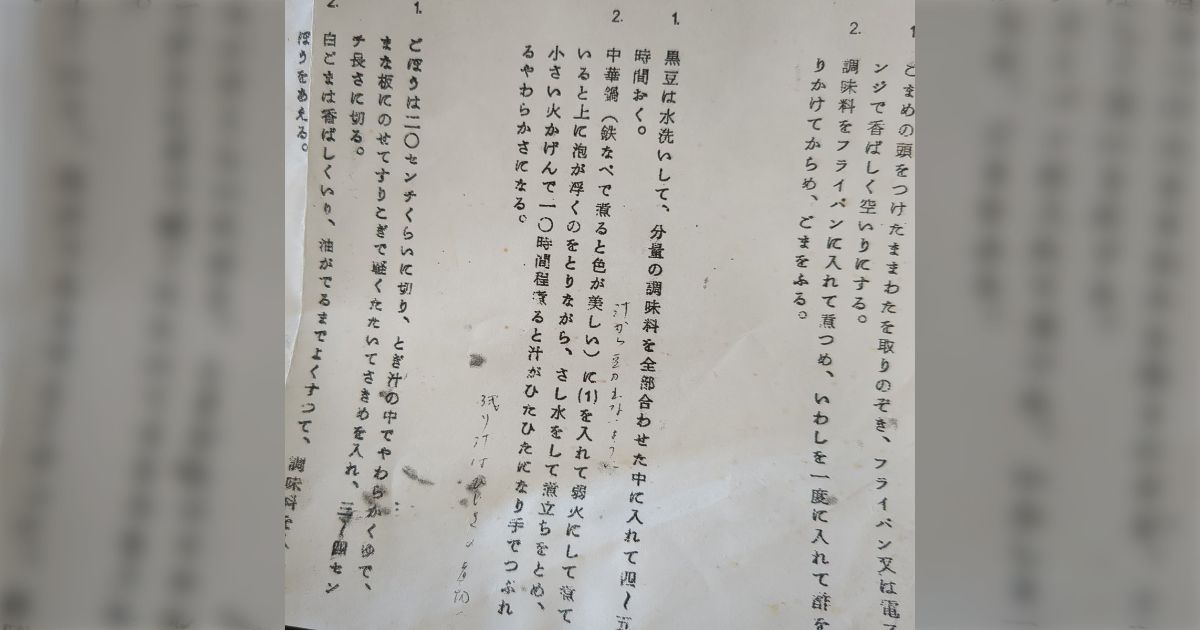 1.
ごまめの頭をつけたままわたを取りのぞき、フライパン又は電子
ンジで香ばしく空いりにする。
2.
調味料をフライパンに入れて煮つめ、いわしを一度に入れて酢を
りかけてからめ、ごまをふる。
1.
黒豆は水洗いして、分量の調味料を全部合わせた中に入れて四〜五
時間おく。
2.
汁から豆が
中華鍋(鉄なべで煮ると色が美しい)に(1)を入れて弱火にして煮て
いると上に泡が浮くのをとりながら、さし水をして煮立ちをとめ、
小さい火かげんで一〇時間程煮ると汁がひたひたになり手でつぶれ
るやわらかさになる。
残り汁はひじきの煮物
1.
ごぼうは二〇センチくらいに切り、とぎ汁の中でやわらかくゆで、
まな板にのせてすりこぎで軽くたたいてさきめを入れ、三〜四セン
チ長さに切る。
2.
白ごまは香ばしくいり、油がでるまでよくすって、調味料
ぼうをあえる。